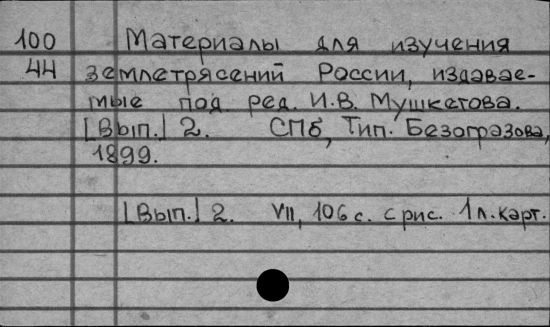 100 Материалы для изучения
44 землетрясений России, издавае-
мые под ред. И.В. Мушкетова.
[Вып.] 2. СПб, Тип. Безобразова,
1899.
[Вып.] 2. VII, 106 с. с рис. 1 л. карт.